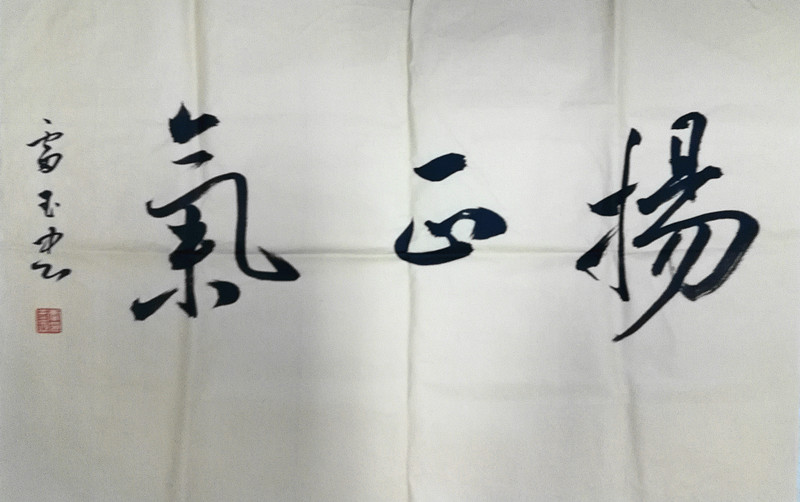 揚正氣
雷玉书